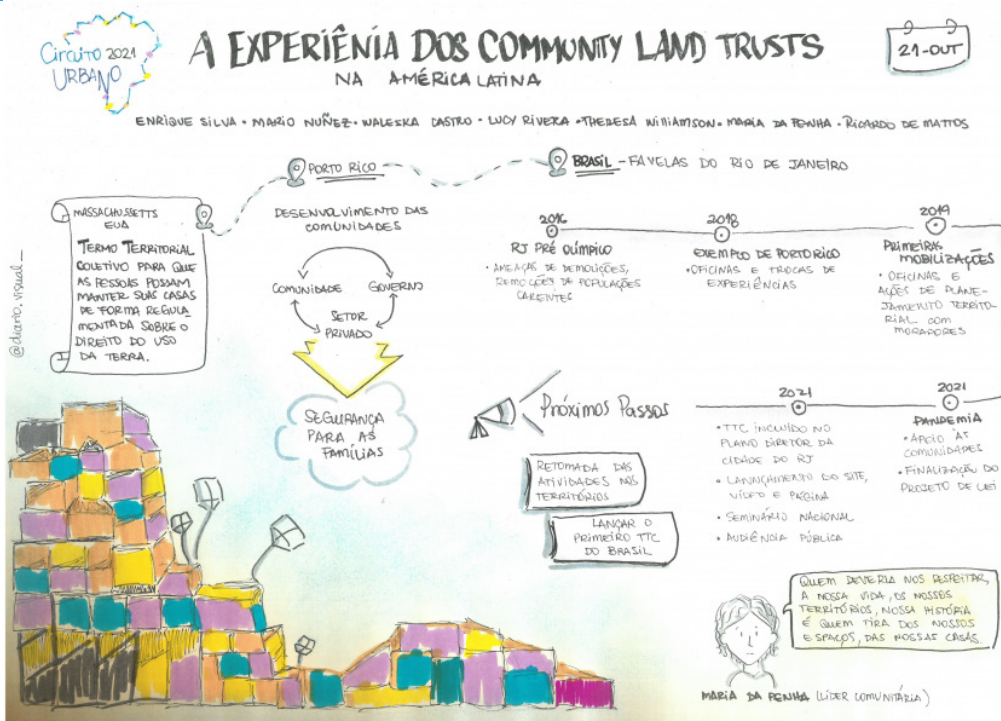 Circuito 2021
URBANO
A EXPERIÊNIA DOS COMMUNITY LAND TRUSTS
NA AMÉRICA LATINA
21-OUT
ENRIQUE SILVA • MARIO NUÑEZ • WALESKA CASTRO • LUCY RIVERA • THERESA WILLIAMSON • MARIA DA PENHA • RICARDO DE MATTOS
PORTO RICO
BRASIL - FAVELAS DO RIO DE JANEIRO
MASSACHUSSETTS
EUA
TERMO TERRITORIAL
COLETIVO PARA QUE
AS PESSOAS POSSAM
MANTER SUAS CASAS
DE FORMA REGULA
MENTADA SOBRE O
DIREITO DO USO
DA TERRA.
@diario.visual_
DESENVOLVIMENTO DAS
COMUNIDADES
COMUNIDADE GOVERNO
SETOR
PRIVADO
SEGURANÇA
PARA AS
FAMÍLIAS
2016
RJ PRÉ OLÍMPICO
• AMEAÇAS DE DEMOLIÇÕES,
REMOÇÕES DE POPULAÇÕES
CARENTES
2018
EXEMPLO DE PORTO RICO
• OFICINAS E TROCAS DE
EXPERIÊNCIAS
2019
PRIMEIRAS
MOBILIZAÇÕES
• OFICINAS E
AÇÕES DE PLANE-
JAMENTO TERRITO-
RIAL COM
MORADORES
2021
PANDEMIA
• APOIO ÀS
COMUNIDADES
• FINALIZAÇÃO DO
PROJETO DE LEI
2021
• TTC INCLUÍDO NO
PLANO DIRETOR DA
CIDADE DO RJ
• LANNÇAMENTO DO SITE,
VÍDEO E PÁGINA
• SEMINÁRIO NACIONAL
• AUDIÊNCIA PÚBLICA
Próximos Passos
RETOMADA DAS
ATIVIDADES NOS
TERRITÓRIOS
LANÇAR O
PRIMEIRO TTC
DO BRASIL
QUEM DEVERIA NOS RESPEITAR,
A NOSSA VIDA, OS NOSSOS
TERRITÓRIOS, NOSSA HISTÓRIA
É QUEM TIRA DOS NOSSOS
ESPAÇOS, DAS NOSSAS CASAS.
MARIA DA PENHA (LÍDER COMUNITÁRIA)